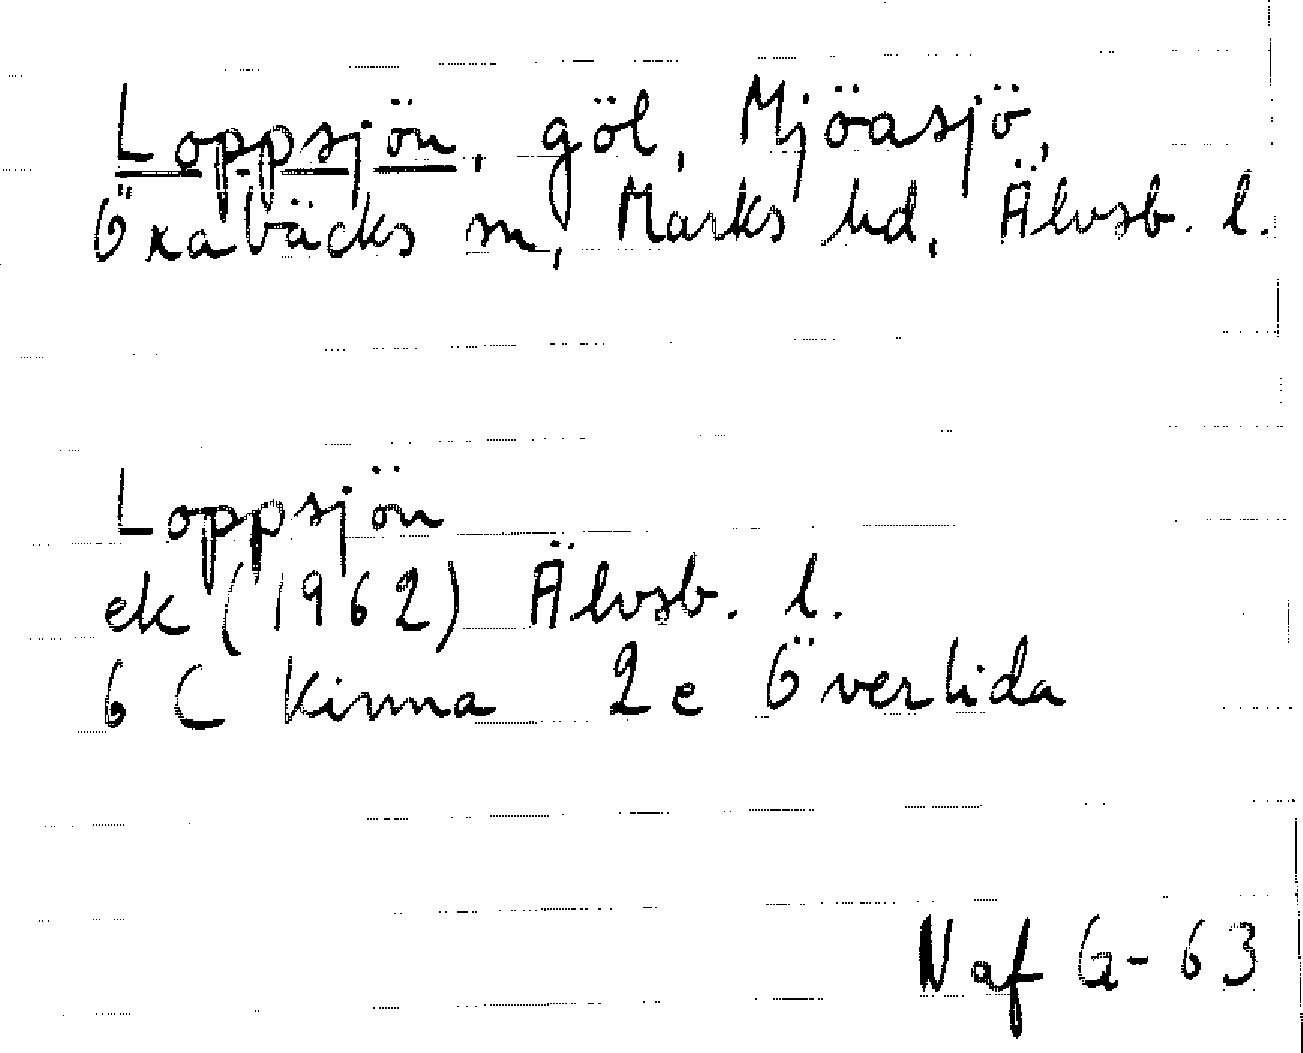 Loppsjön, göl, Mjöasjö,
Öxabäcks sn, Marks hd, Älvsb. l.
Loppsjön
ek (1962) Älvsb. l.
6 C Kinna 2e Överlida
Naf G-63